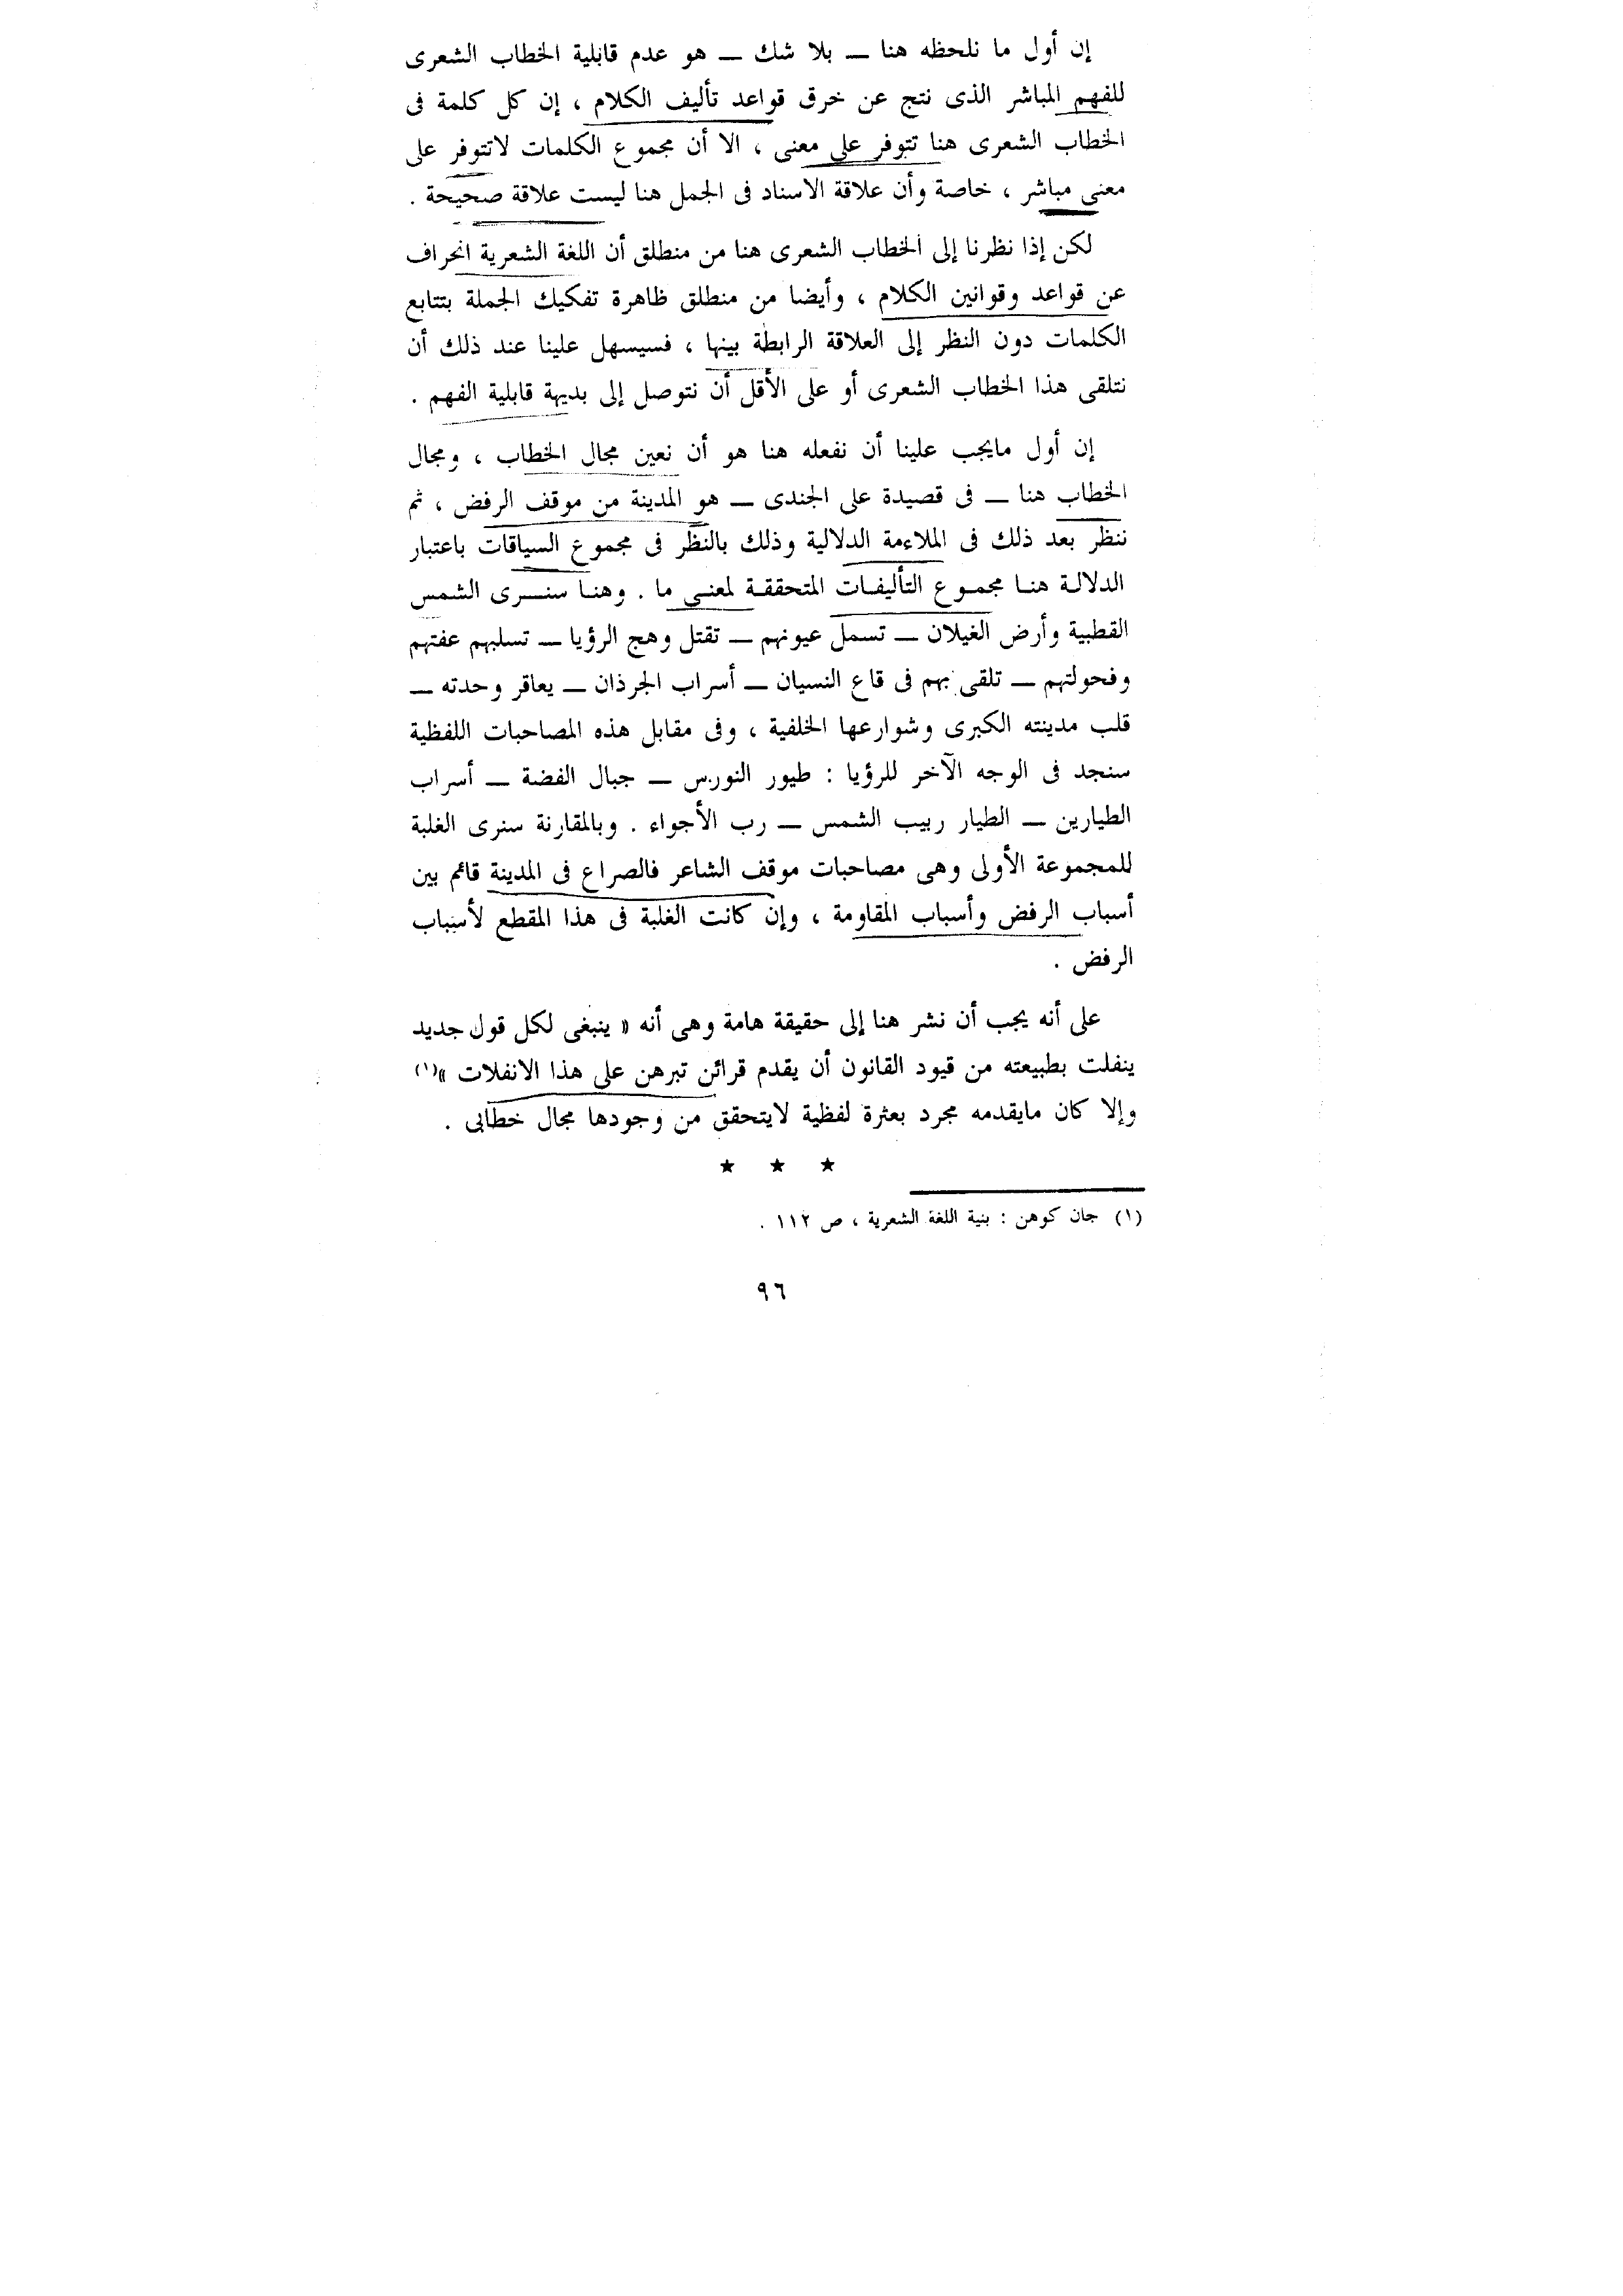 إن أول ما نلحظه هنا — بلا شك — هو عدم قابلية الخطاب الشعرى
للفهم المباشر الذى نتج عن خرق قواعد تأليف الكلام ، إن كل كلمة فى
الخطاب الشعرى هنا تتوفر على معنى ، الا أن مجموع الكلمات لاتتوفر على
معنى مباشر ، خاصة وأن علاقة الاسناد فى الجمل هنا ليست علاقة صحيحة .
لكن إذا نظرنا إلى الخطاب الشعرى هنا من منطلق أن اللغة الشعرية انحراف
عن قواعد وقوانين الكلام ، وأيضا من منطلق ظاهرة تفكيك الجملة بتتابع
الكلمات دون النظر إلى العلاقة الرابطة بينها ، فسيسهل علينا عند ذلك أن
نتلقى هذا الخطاب الشعرى أو على الأقل أن نتوصل إلى بديهة قابلية الفهم .
إن أول مايجب علينا أن نفعله هنا هو أن نعين مجال الخطاب ، ومجال
الخطاب هنا — فى قصيدة على الجندى — هو المدينة من موقف الرفض ، ثم
ننظر بعد ذلك فى الملاءمة الدلالية وذلك بالنظر فى مجموع السياقات باعتبار
الدلالة هنا مجموع التأليفات المتحققة لمعنى ما . وهنا سنرى الشمس
القطبية وأرض الغيلان — تسمل عيونهم — تقتل وهج الرؤيا — تسلبهم عفتهم
وفحولتهم — تلقى بهم فى قاع النسيان — أسراب الجرذان — يعاقر وحدته —
قلب مدينته الكبرى وشوارعها الخلفية ، وفى مقابل هذه المصاحبات اللفظية
سنجد فى الوجه الآخر للرؤيا : طيور النورس — جبال الفضة — أسراب
الطيارين — الطيار ربيب الشمس — رب الأجواء . وبالمقارنة سنرى الغلبة
للمجموعة الأولى وهى مصاحبات موقف الشاعر فالصراع فى المدينة قائم بين
أسباب الرفض وأسباب المقاومة ، وإن كانت الغلبة فى هذا المقطع لأسباب
الرفض .
على أنه يجب أن نشر هنا إلى حقيقة هامة وهى أنه « ينبغى لكل قول جديد
ينفلت بطبيعته من قيود القانون أن يقدم قرائن تبرهن على هذا الانفلات »(١)
وإلا كان مايقدمه مجرد بعثرة لفظية لايتحقق من وجودها مجال خطابى .
★ ★ ★
(١) جان كوهن : بنية اللغة الشعرية ، ص ١١٢ .
٩٦